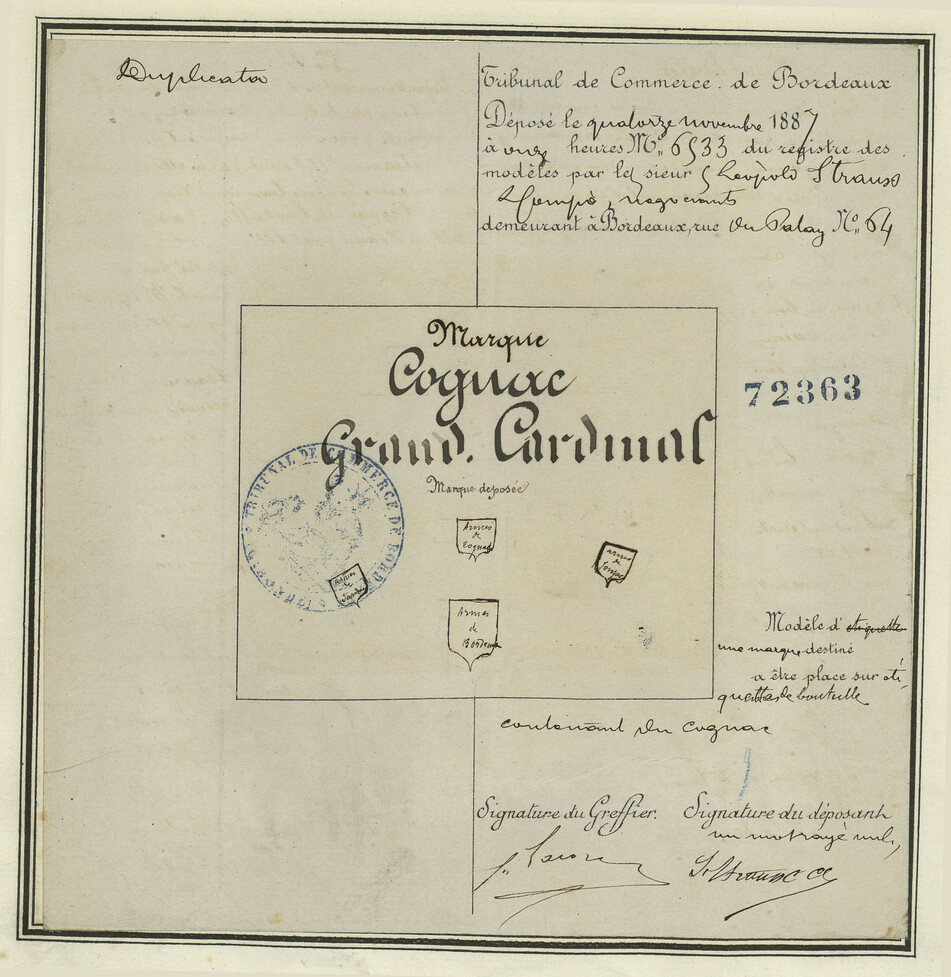 Duplicata
Tribunal de Commerce. de Bordeaux
Déposé le quatorze novembre 1887
à onze heures No. 6533 du registre des
modèles par les sieurs Léopold Strauss
& Compie, négociants
demeurant à Bordeaux, rue du Palay No. 64
Marque
Cognac
Grand. Cardinal
Marque deposée
72363
TRIBUNAL DE COMMERCE DE BORD
Armes
de
Cognac
Armes
de
Armes
de
Armes
de
Bordeaux
Modèle d' etiquette
une marque destiné
a être place sur éti
quettes de bouteille
contenant du cognac
Signature du Greffier. Signature du déposant
un mot rayé nul,
L. Strauss & Cie